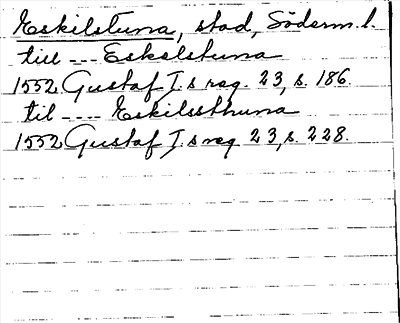 Eskilstuna, stad, Söderm.l.
till --- Eskelstuna
1552 Gustaf I.s reg. 23, s. 186.
til ---- Eskilssthuna
1552 Gustaf I.s reg 23, s. 228.